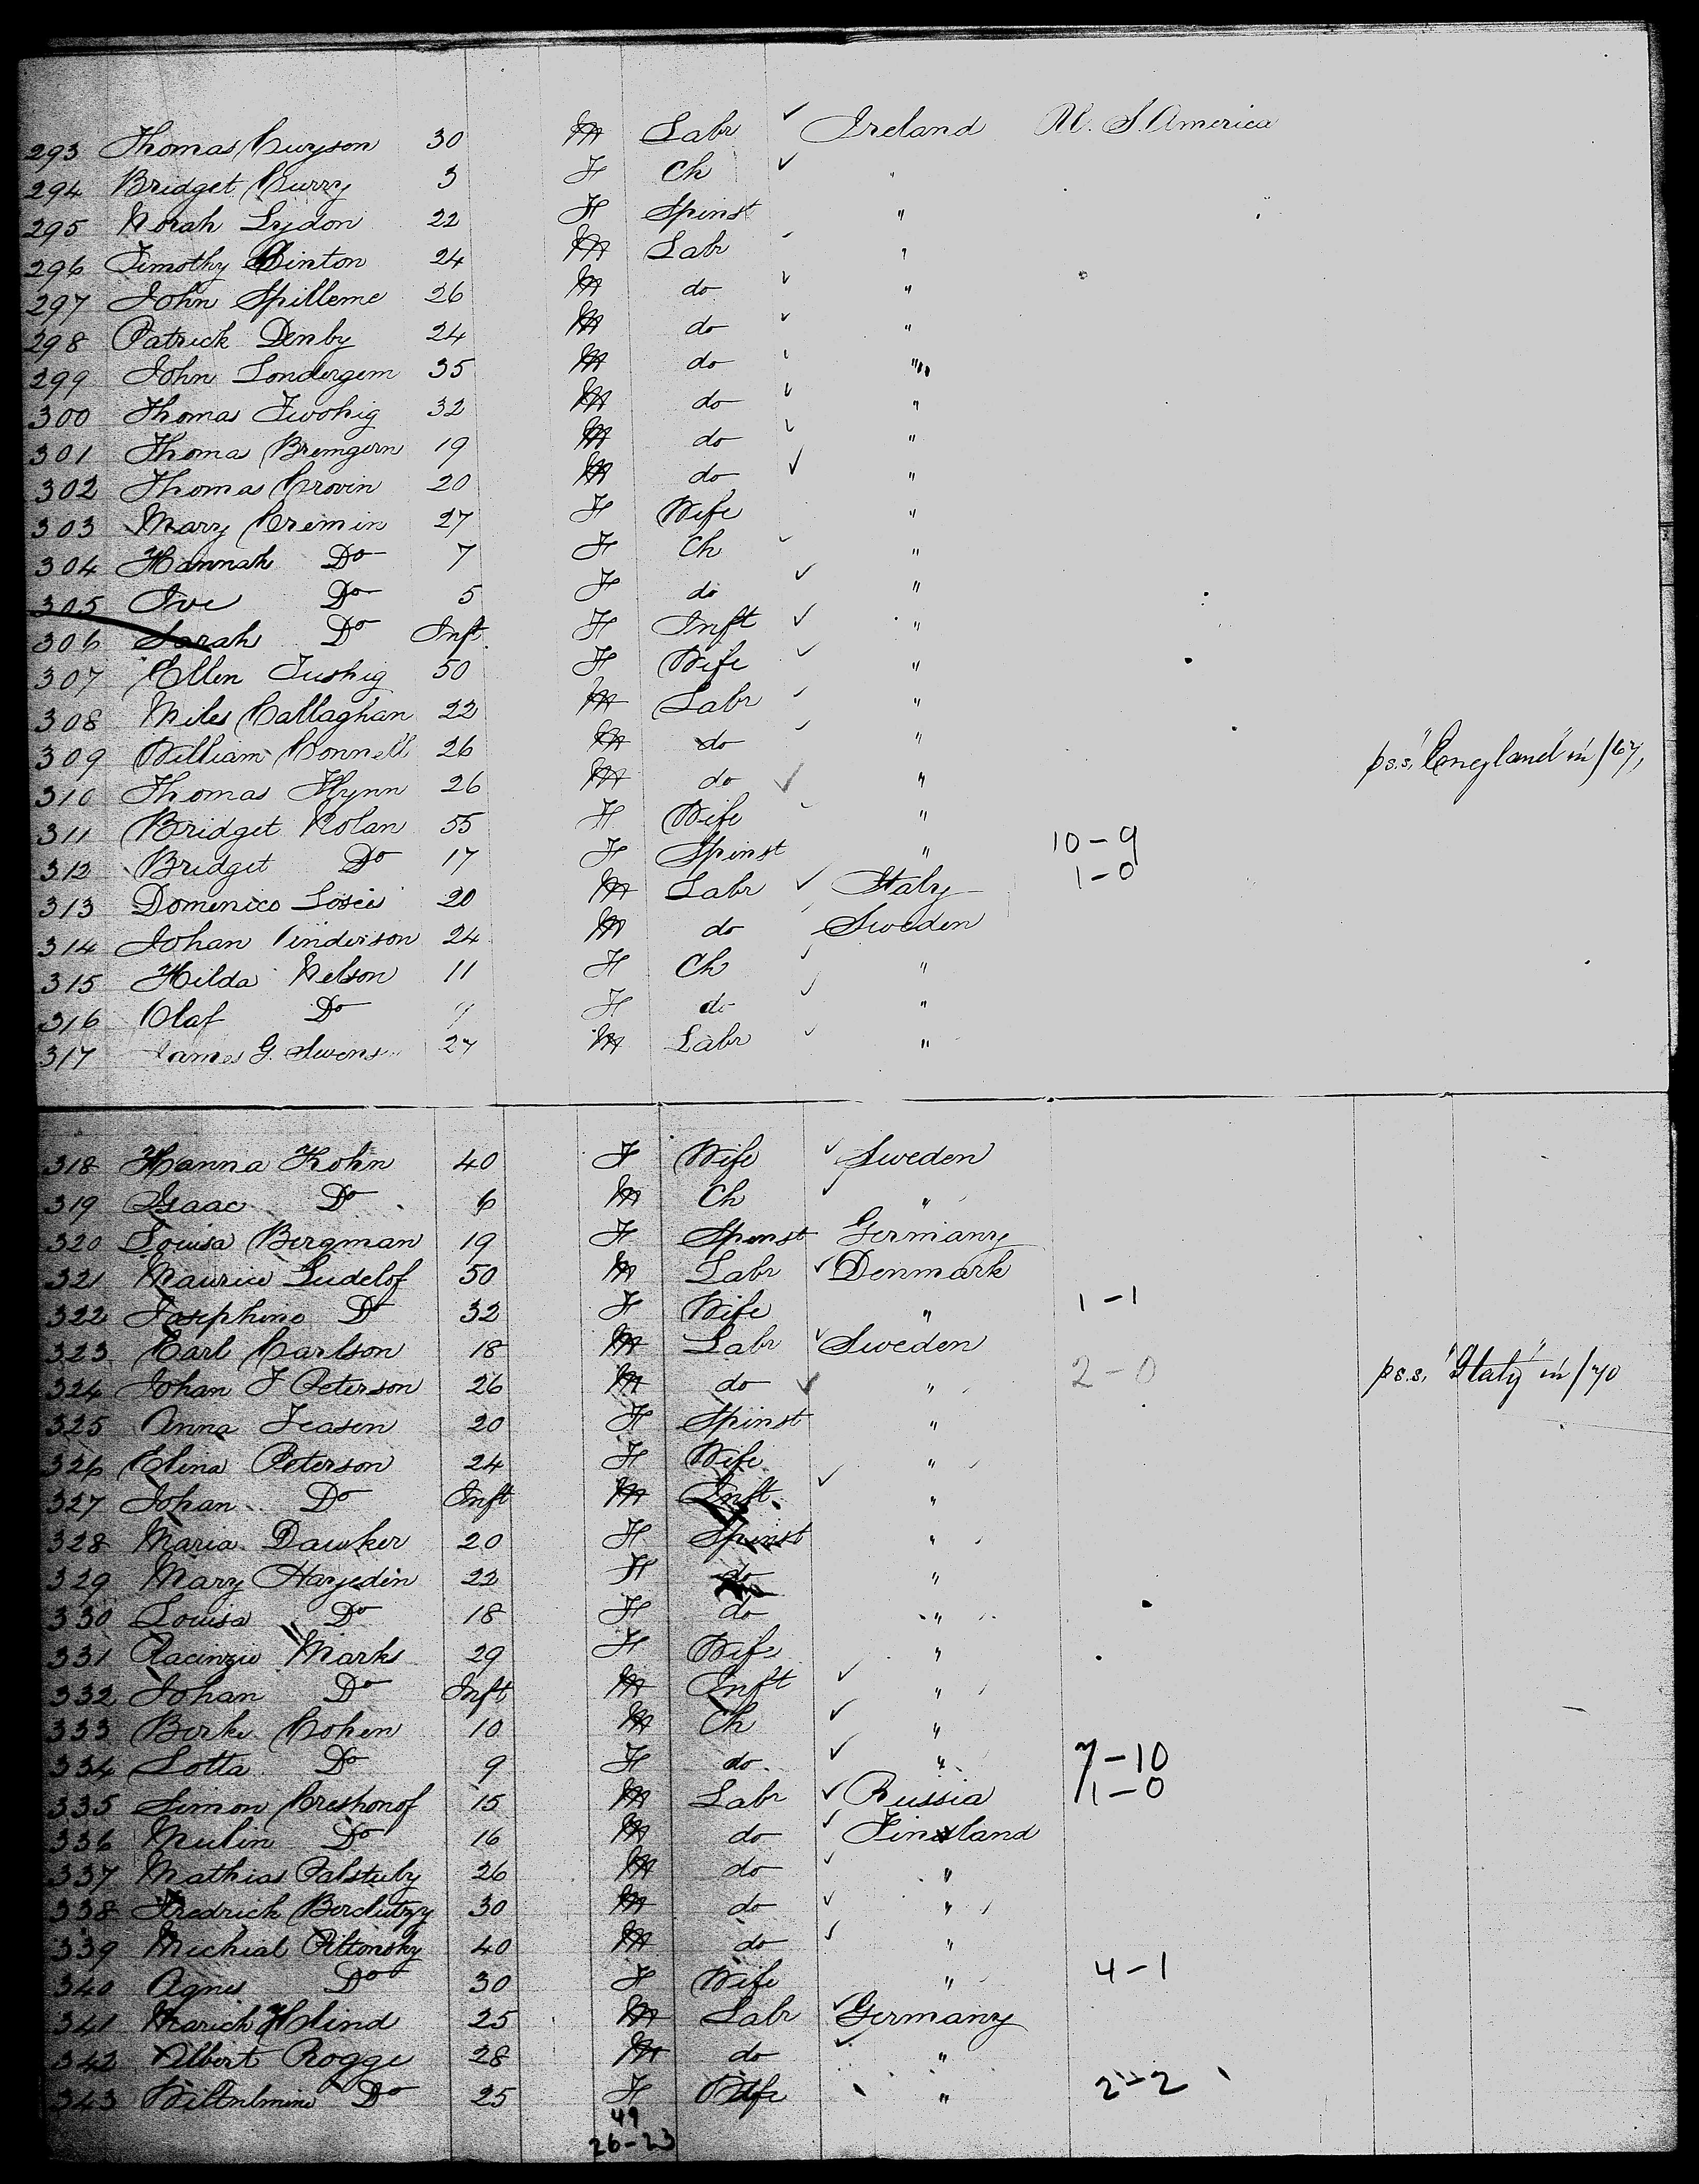 293 Thomas Cuyson 30 M Labr ✓ Ireland U. S. America
294 Bridget Curry 3 F Ch ✓ "
295 Norah Lydon 22 F Spinst "
296 Timothy Clinton 24 M Labr "
297 John Spilleme 26 M do ✓ "
298 Patrick Denby 24 M do ✓ "
299 John Londergem 35 M do "
300 Thomas Twohig 32 M do ✓ "
301 Thomas Bremgern 19 M do ✓ "
302 Thomas Crovin 20 M do ✓ "
303 Mary Cremin 27 F Wife "
304 Hannah Do 7 F Ch ✓ "
305 Ive Do 5 F do ✓ "
306 Sarah Do Inft F Inft ✓ "
307 Ellen Tushig 50 F Wife ✓ "
308 Miles Callaghan 22 M Labr ✓ "
309 William Connell 26 M do ✓ "
310 Thomas Flynn 26 M do ✓ " p s.s. "England" in /67,
311 Bridget Nolan 55 F Wife "
312 Bridget Do 17 F Spinst " 10-9
313 Domenico 20 M Labr ✓ Italy 1-0
314 Johan Anderson 24 M do Sweden
315 Hilda Nelson 11 F Ch ✓ "
316 Olaf Do F do ✓ "
317 James G. 27 M Labr ✓ "
318 Hanna Kohn 40 F Wife ✓ Sweden
319 Isaac Do 6 M Ch ✓ "
320 Louisa Bergman 19 F Spinst Germany
321 Maurice Gudelof 50 M Labr ✓ Denmark
322 Josephine Do 32 F Wife " 1-1
323 Carl Carlson 18 M Labr ✓ Sweden
324 Johan F Peterson 26 M do ✓ " 2-0 p s.s. "Italy" in /70
325 Anna Jeasen 20 F Spinst "
326 Elina Peterson 24 F Wife "
327 Johan Do Inft M Inft ✓ "
328 Maria Dawker 20 F Spinst "
329 Mary Hayedin 22 F do "
330 Louisa Do 18 F do "
331 Marks 29 F Wife "
332 Johan Do Inft M Inft ✓ "
333 Berke Cohen 10 M Ch ✓ "
334 Lotta Do 9 F do ✓ " 7-10
335 Simon Creshonof 15 M Labr ✓ Russia 1-0
336 Do 16 M do ✓ Finland
337 Mathias Palstuby 26 M do ✓ "
338 Fredrick 30 M do ✓ "
339 Michial Piltonsky 40 M do ✓ "
340 Agnes Do 30 F Wife " 4-1
341 Hlind 25 M Labr ✓ Germany
342 Albert Rogge 28 M do ✓ "
343 Do 25 F Wife " 2-2
49
26-23